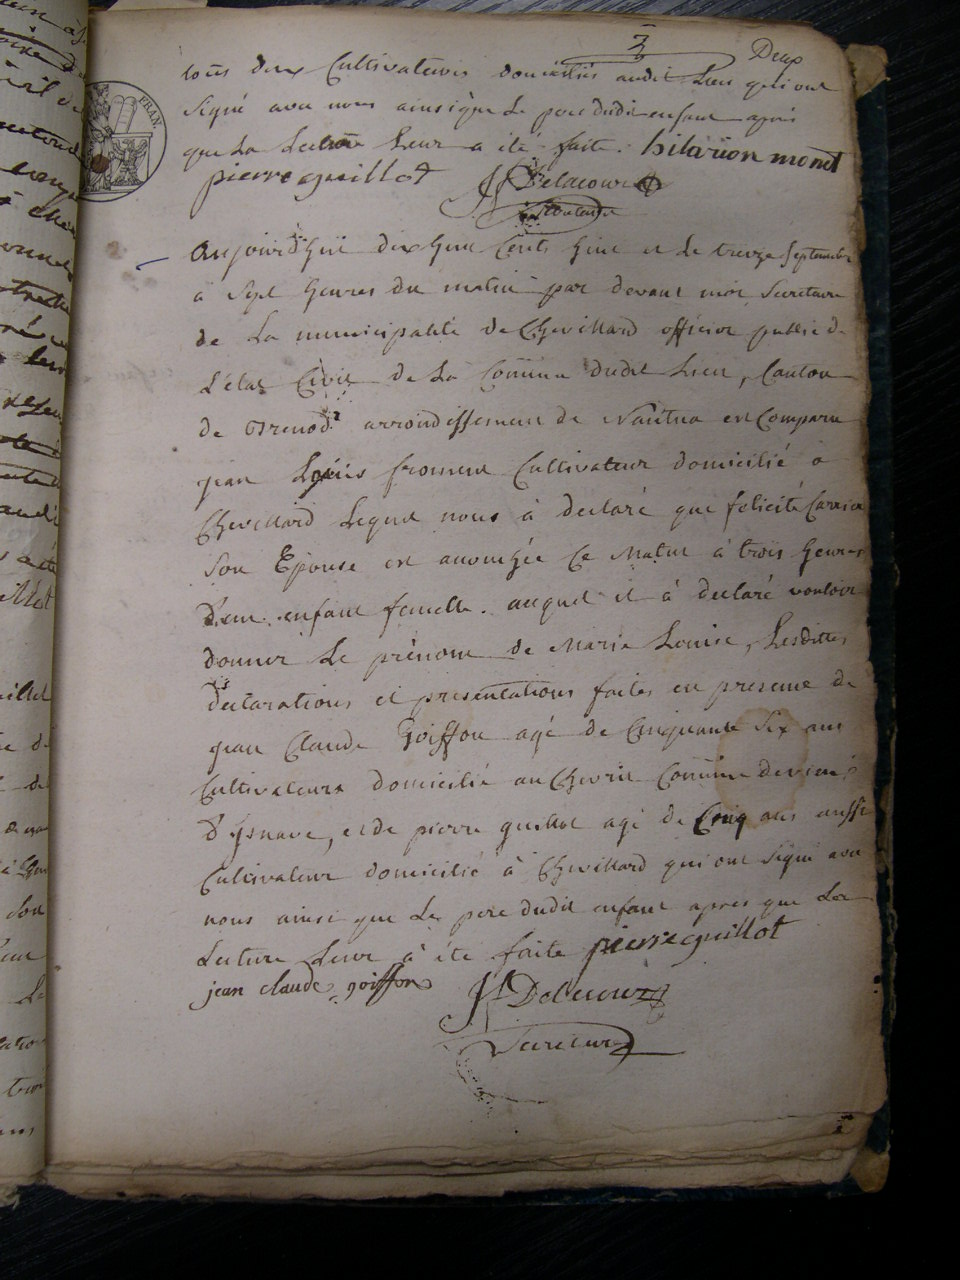 2
Deux
FRAN
tous deux Cultivateurs domiciliés audit Lieu qui ont
signé avec nous ainsi que Le pere dudit enfant après
que La Lecture Leur a été faite. hilarion monet
pierre guillot J Delacour
Aujourd'hui dix huit Cents huit et Le treize Septembre
à Sept heures du matin par devant moi Secretaire
de La municipalité de Chevillard officier public de
L'état Civil de La Commune dudit Lieu, Canton
de Brenod arrondissement de Nantua est Comparu
jean Louis froment Cultivateur domicilié à
Chevillard Lequel nous à declaré que felicité Carrier
son Epouse est accouchée Ce Matin à trois heures
d'un enfant femelle. auquel il à declaré vouloir
donner Le prénom de Marie Louise, Lesdittes
declarations et presentations faites en presence de
jean Claude Goiffon agé de Cinquante Six ans
Cultivateurs domicilié au Chevril Commune de vieu
d'Isnave, et de pierre guillot agé de Cinq ans aussi
Cultivateur domicilié à Chevillard qui ont signé avec
nous ainsi que Le pere dudit enfant apres que La
Lecture Leur à été faite pierre guillot
jean claude goiffon J Delacour
Secretaire